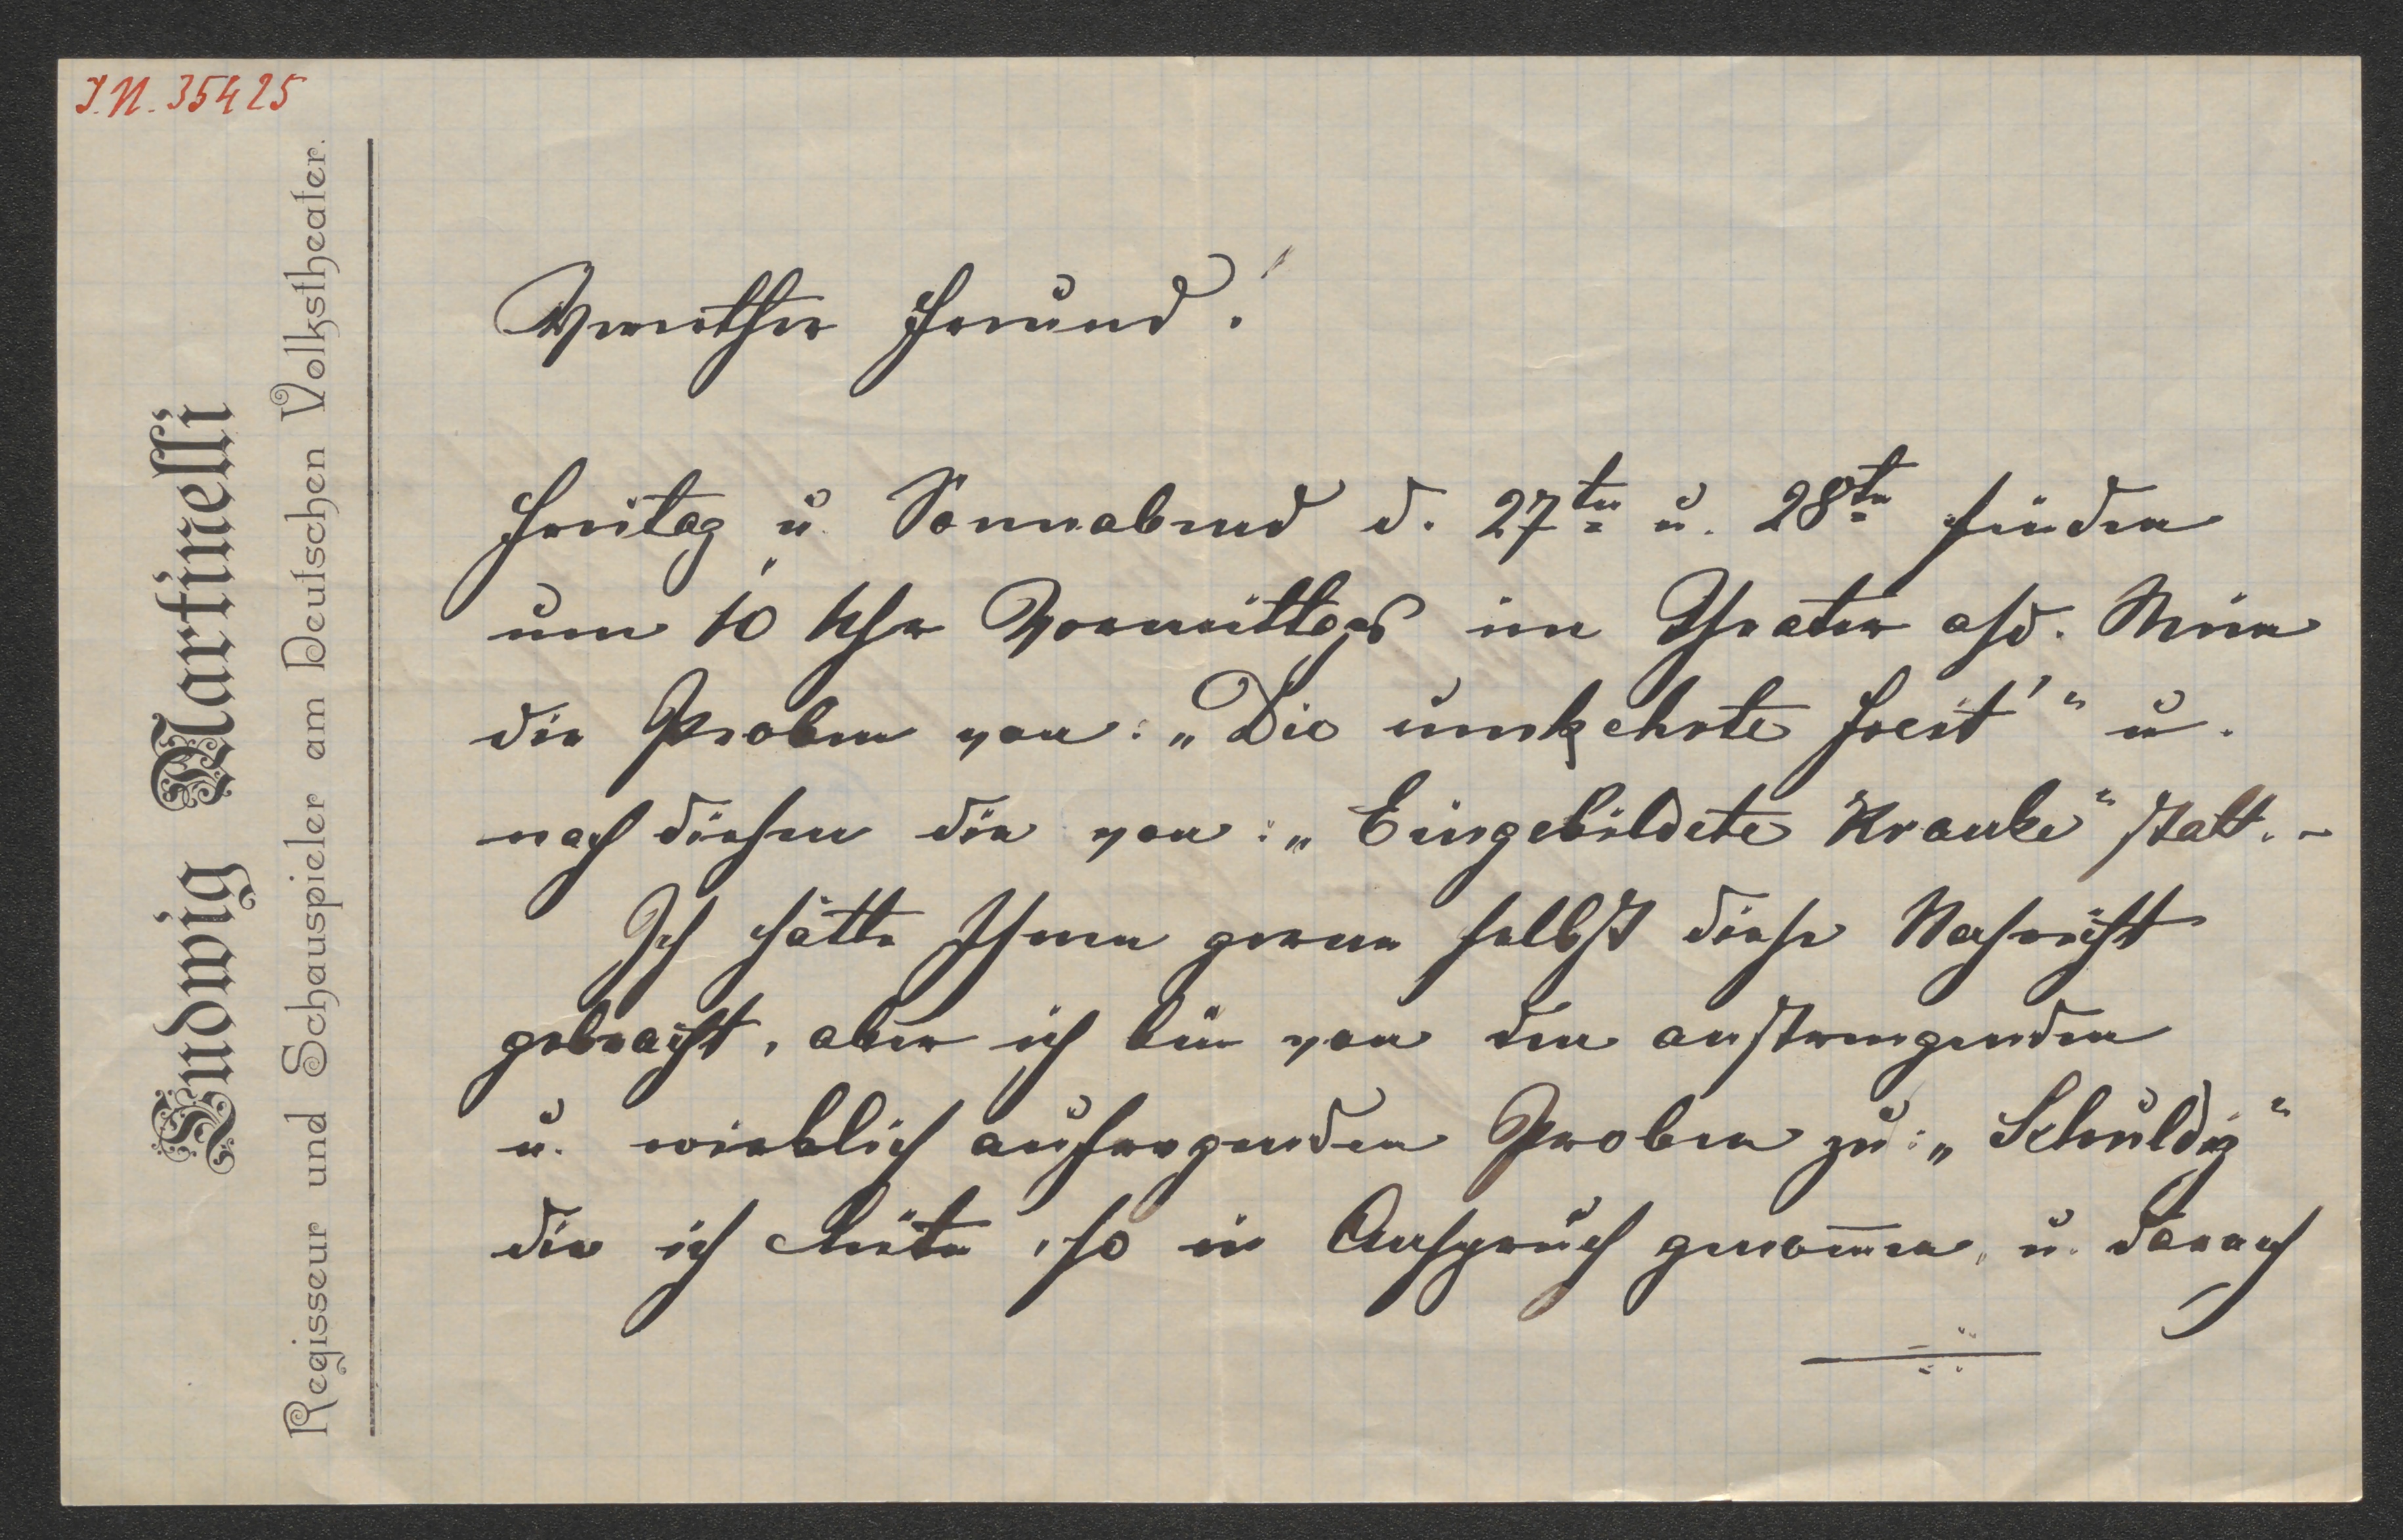 J.N. 35425
Ludwig Martinelli
Regisseur und Schauspieler am Deutschen Volkstheater.
Werther Freund!
Freitag u. Sonnabend d. 27ten u. 28ten finden
um 10 Uhr Vormittags im Theater a/d. Wien
die Proben von: „Die umkehrte Freit'“ u.
nach diesen die von: „Eingebildete Kranke“ statt. –
Ich hätte Ihnen gerne selbst diese Nachricht
gebracht, aber ich bin von den anstrengenden
u. wirklich aufregenden Proben zu: „Schuldig“
die ich leite, so in Anspruch genom̄en, u.